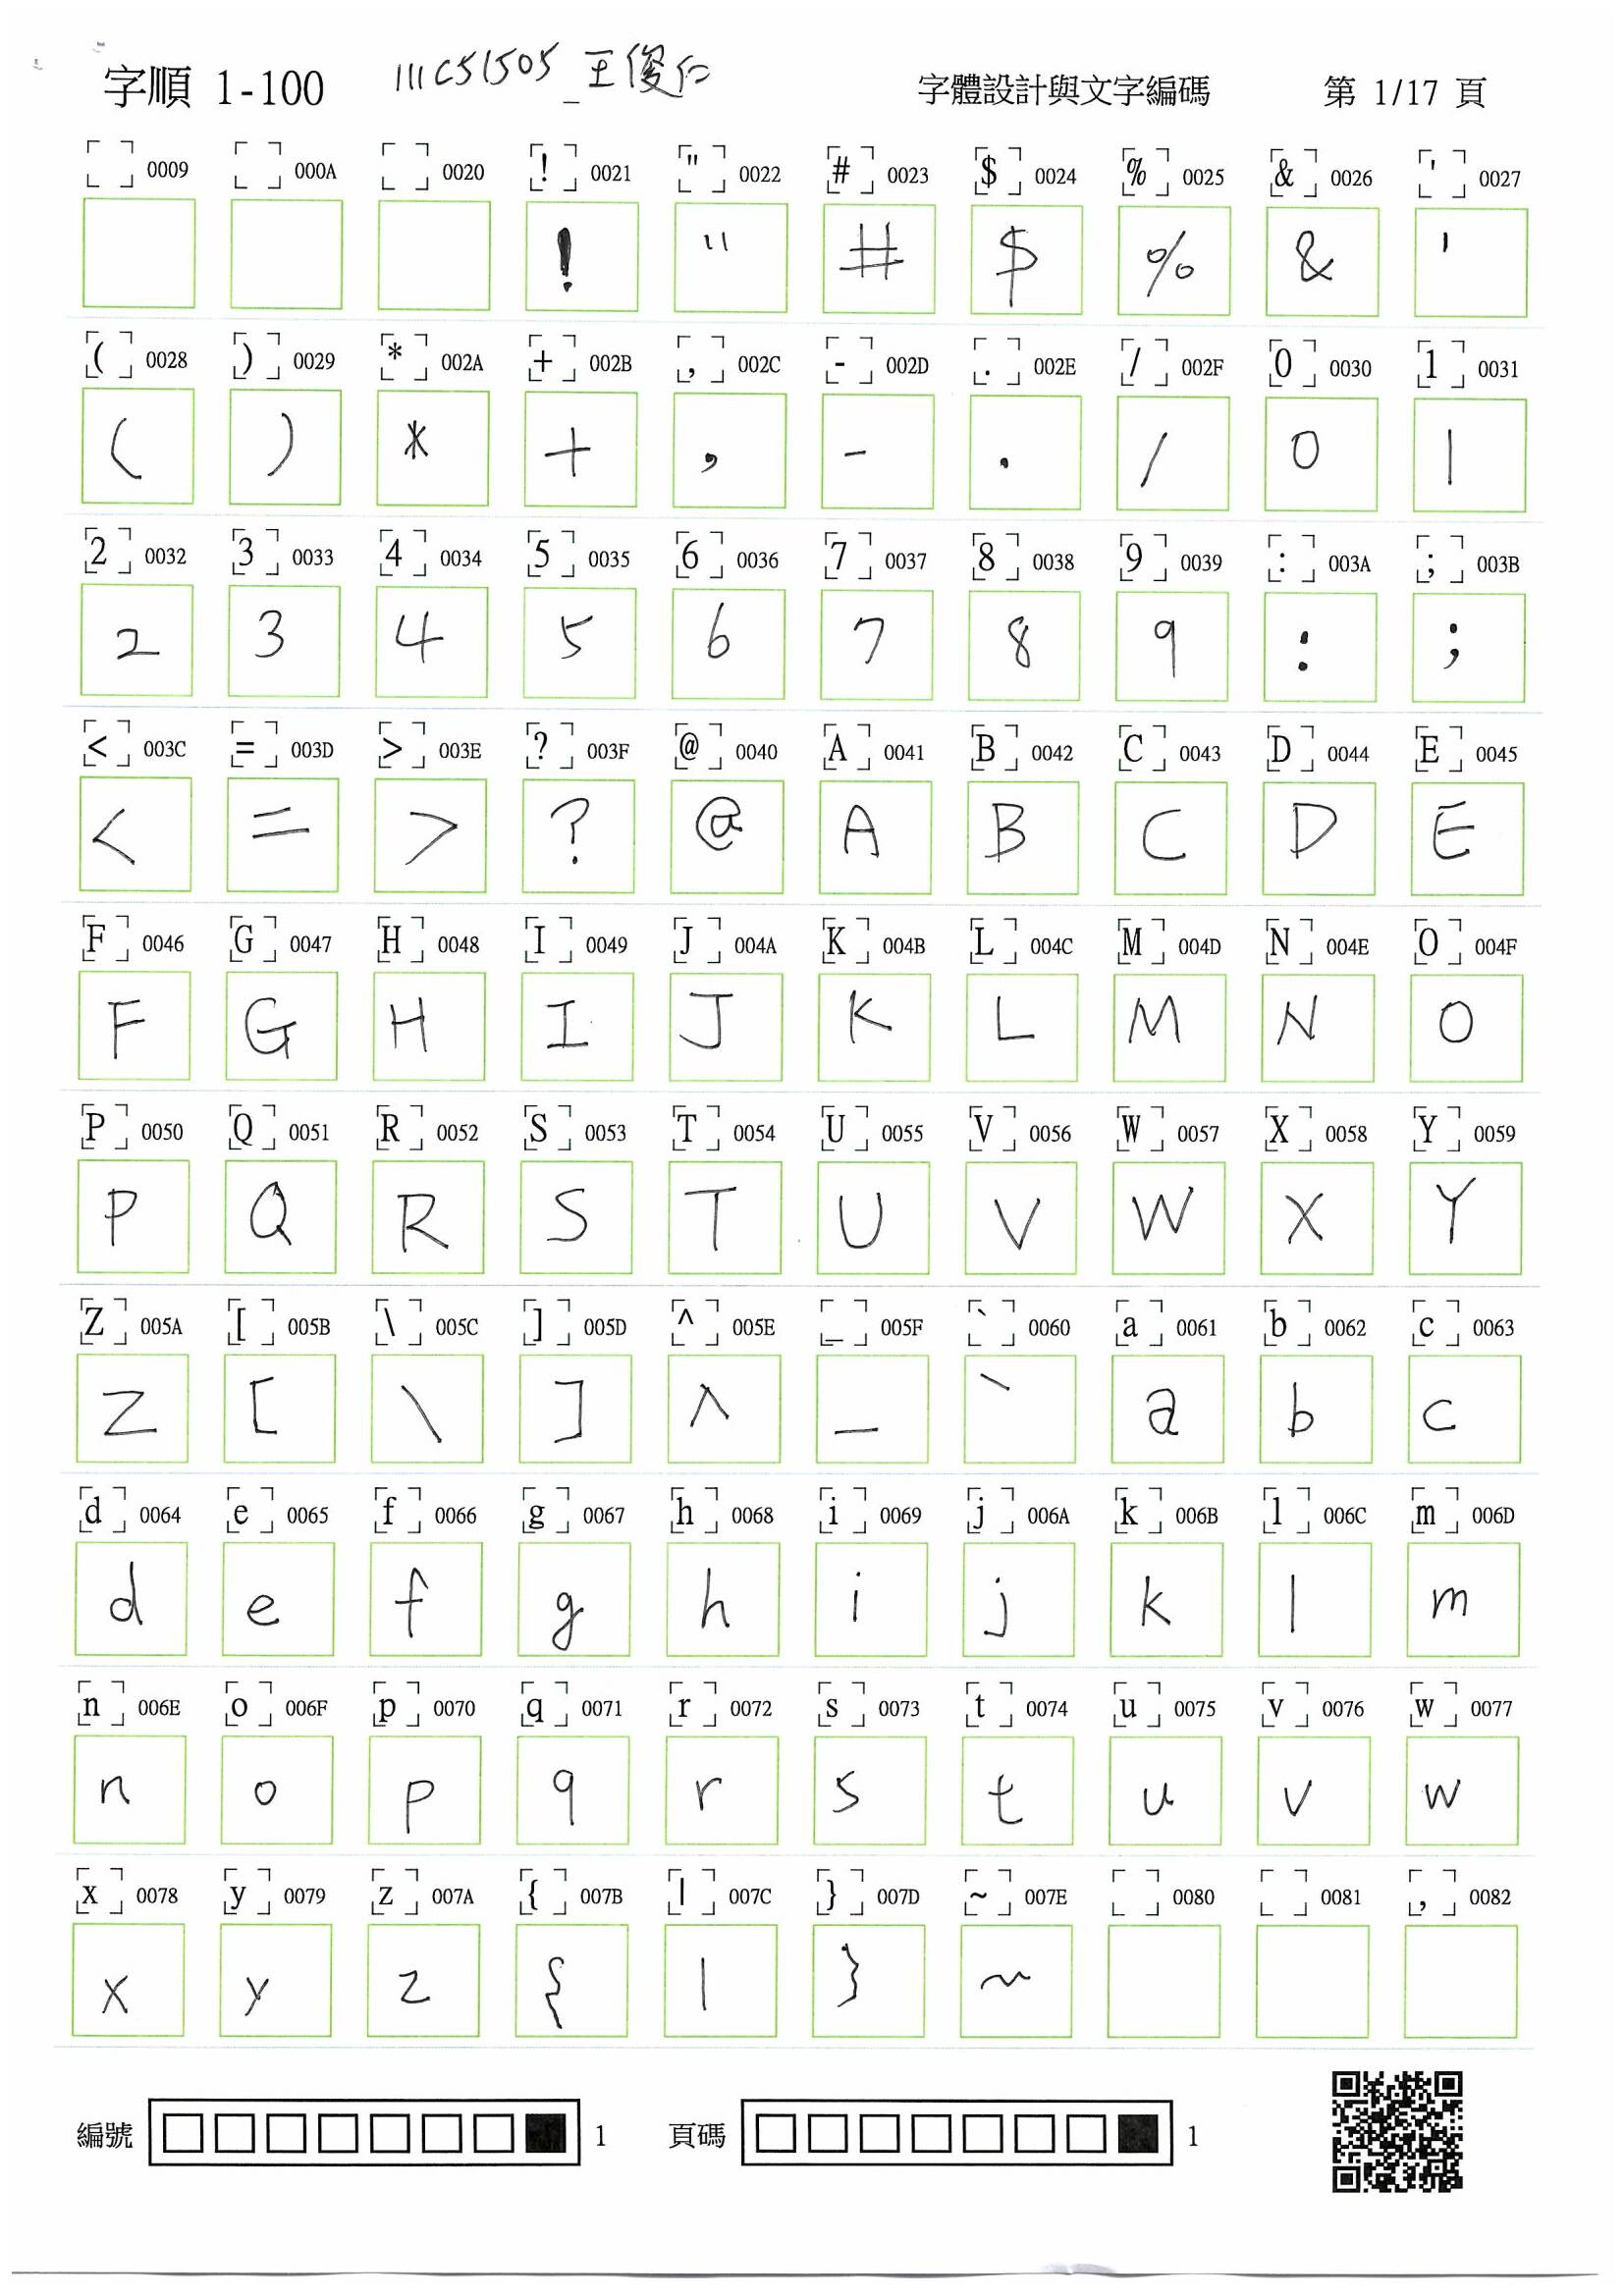 字順 1-100 111C51505_王俊仁 字體設計與文字編碼 第 1/17 頁
0009 000A 0020 ! 0021 " 0022 # 0023 $ 0024 % 0025 & 0026 ' 0027
! " # $ % & '
( 0028 ) 0029 * 002A + 002B , 002C - 002D . 002E / 002F 0 0030 1 0031
( ) * + , - . / 0 1
2 0032 3 0033 4 0034 5 0035 6 0036 7 0037 8 0038 9 0039 : 003A ; 003B
2 3 4 5 6 7 8 9 : ;
< 003C = 003D > 003E ? 003F @ 0040 A 0041 B 0042 C 0043 D 0044 E 0045
< = > ? @ A B C D E
F 0046 G 0047 H 0048 I 0049 J 004A K 004B L 004C M 004D N 004E O 004F
F G H I J K L M N O
P 0050 Q 0051 R 0052 S 0053 T 0054 U 0055 V 0056 W 0057 X 0058 Y 0059
P Q R S T U V W X Y
Z 005A [ 005B \ 005C ] 005D ^ 005E _ 005F ` 0060 a 0061 b 0062 c 0063
Z [ \ ] ^ _ ` a b c
d 0064 e 0065 f 0066 g 0067 h 0068 i 0069 j 006A k 006B l 006C m 006D
d e f g h i j k l m
n 006E o 006F p 0070 q 0071 r 0072 s 0073 t 0074 u 0075 v 0076 w 0077
n o p q r s t u v w
x 0078 y 0079 z 007A { 007B | 007C } 007D ~ 007E 0080 0081 , 0082
x y z { | } ~
編號 1 頁碼 1